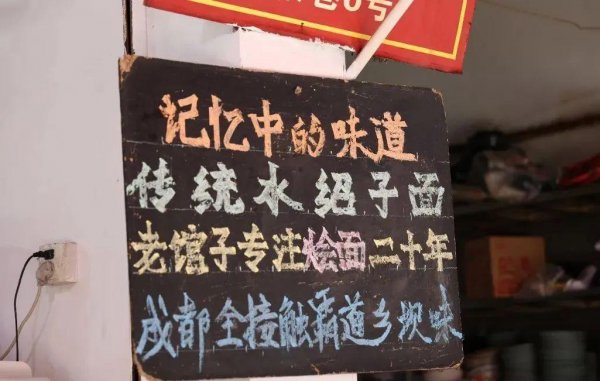 巷6号
记忆中的味道
传统水绍子面
老馆子专注烩面二十年
成都全接触霸道乡坝味